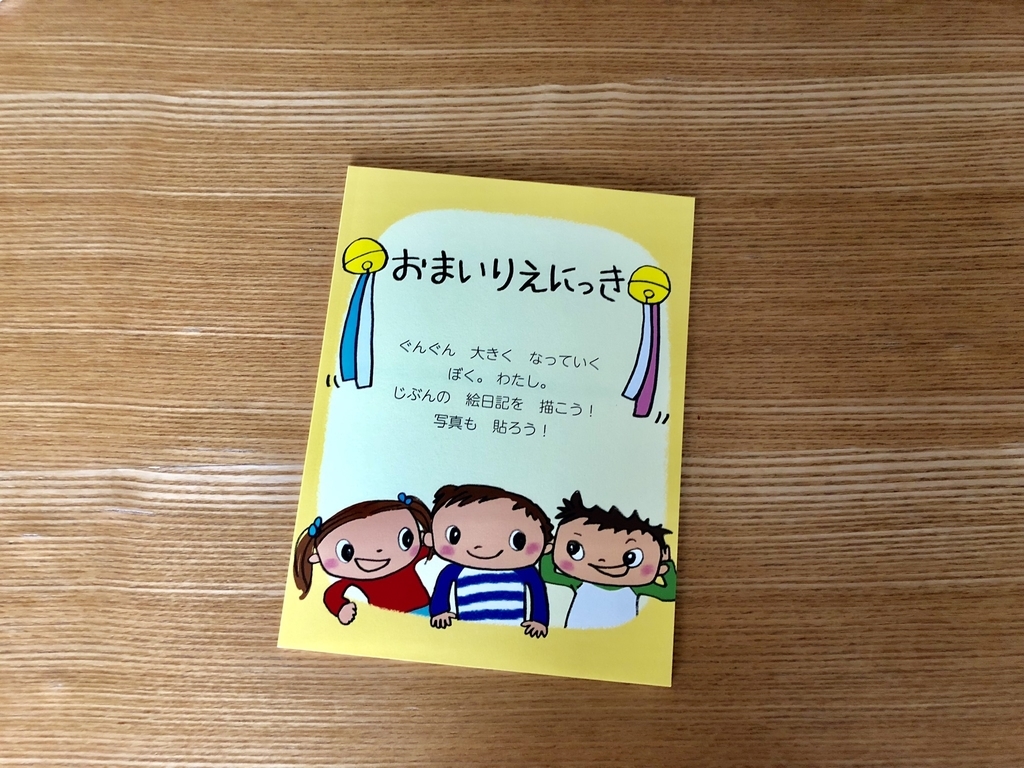 おまいりえにっき
ぐんぐん　大きく　なっていく
ぼく。わたし。
じぶんの　絵日記を　描こう！
写真も　貼ろう！